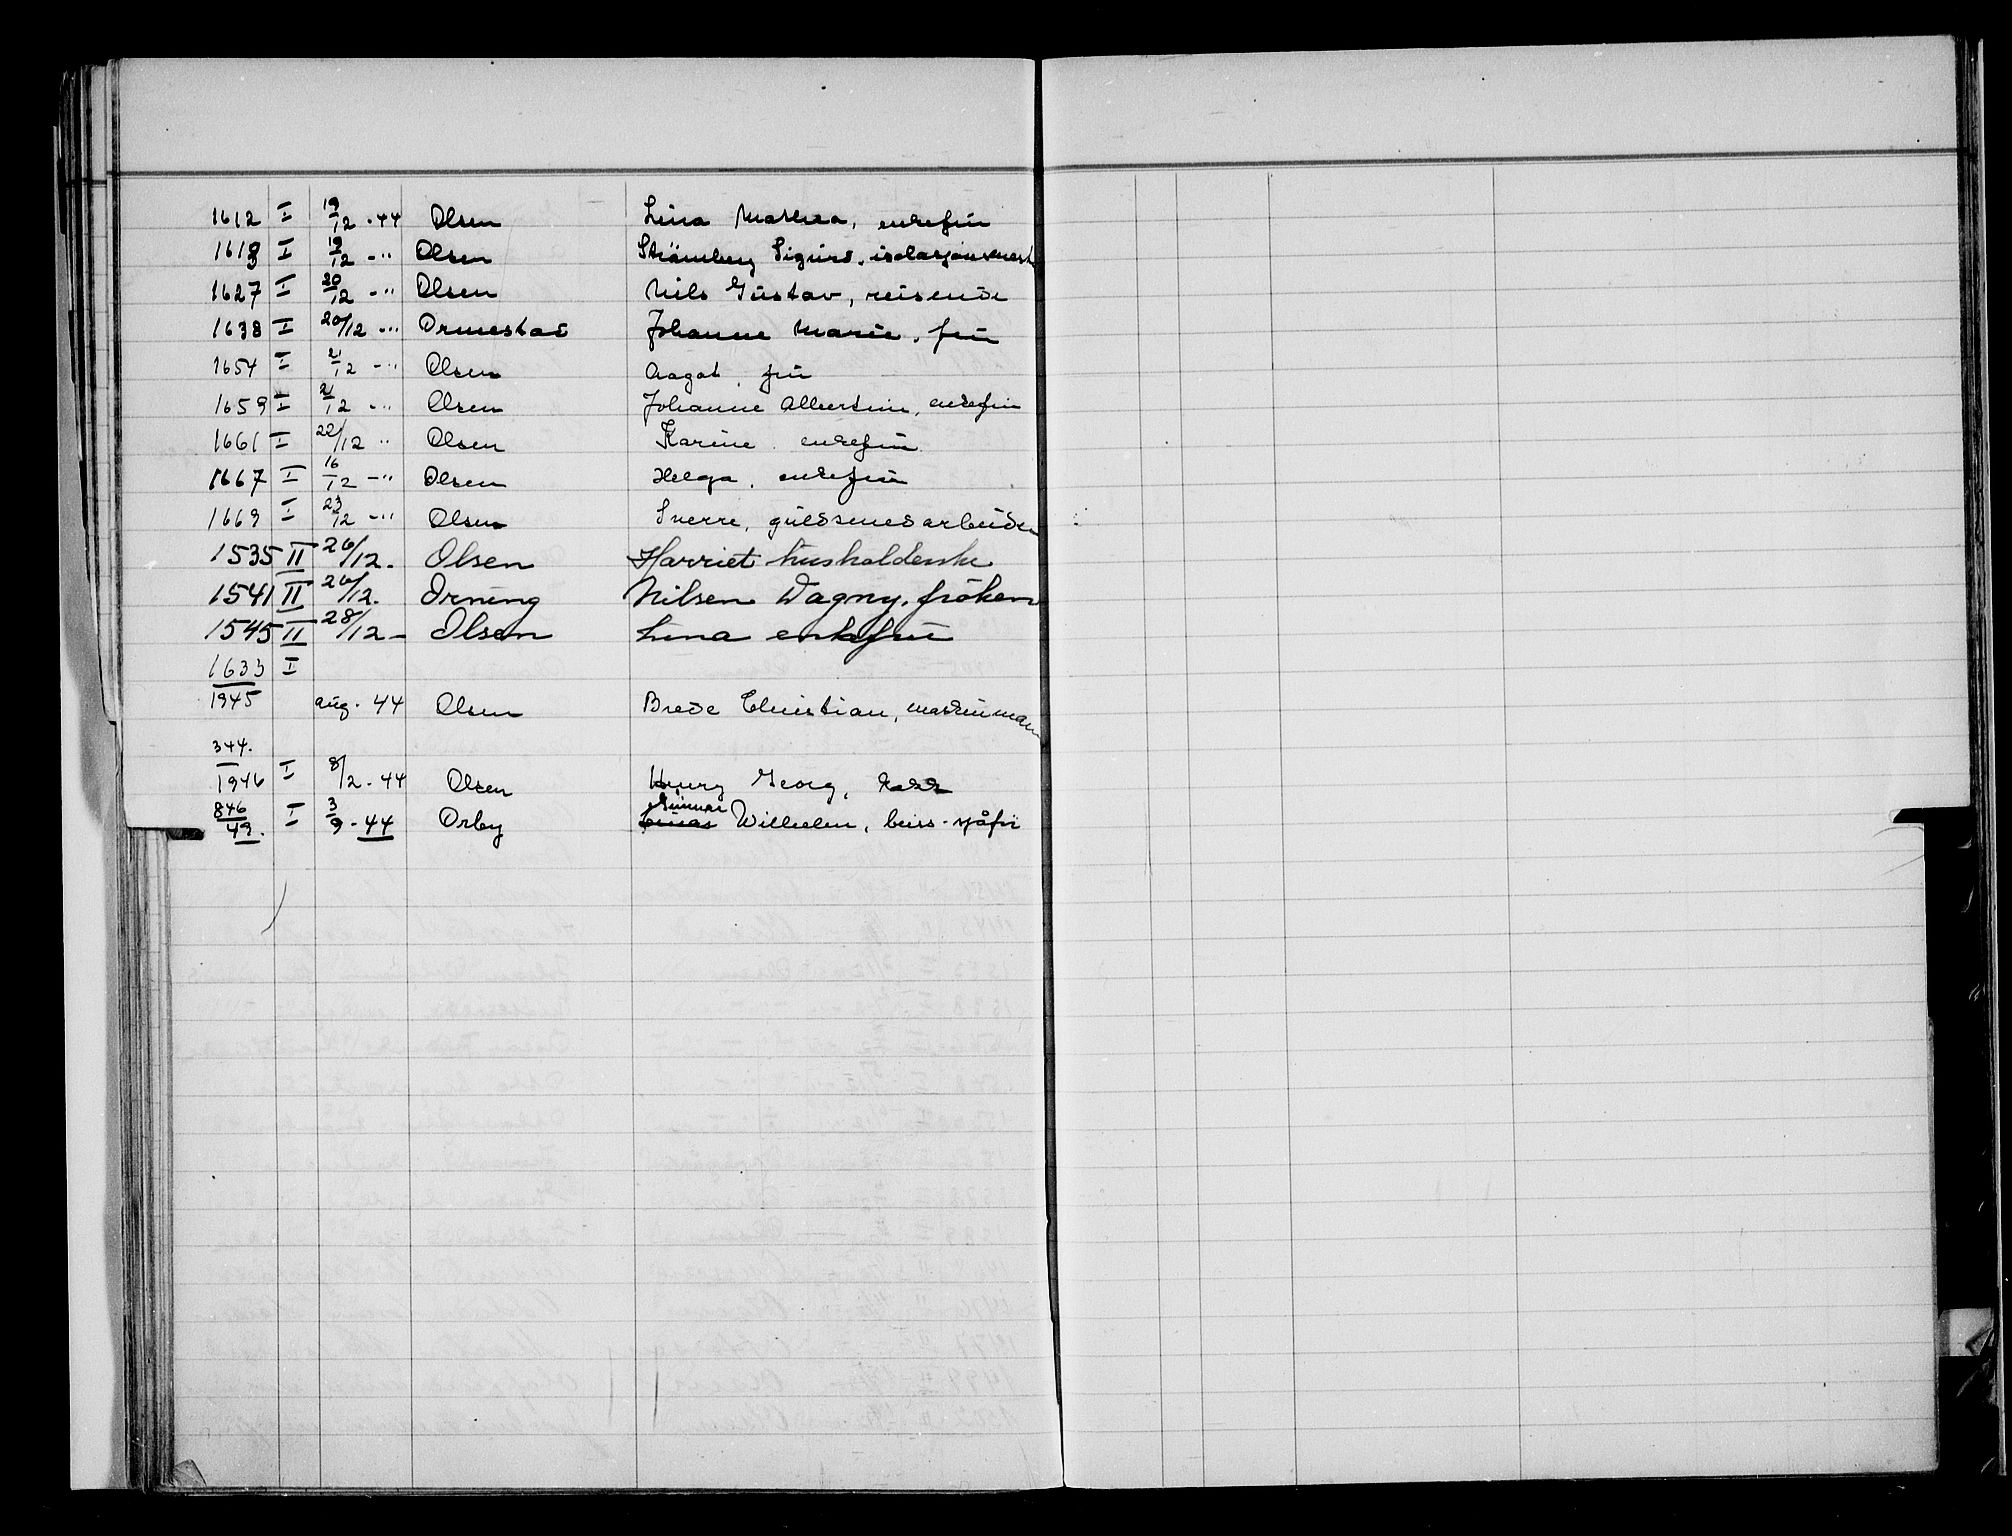 1612 I 19/12 - 44 Olsen Lina Mathea, enkefru
1613 I 19/12 - " Olsen Strömberg Sigurd, isolasjonsmest
1627 I 20/12 - " Olsen Nils Gustav, reisende
1638 I 20/12 - " Ormestad Johanne Marie, fru
1654 I 21/12 - " Olsen Aagot, fru
1659 I 21/12 - " Olsen Johanne Albertine, enkefru
1661 I 22/12 " Olsen Karine, enkefru
1667 I 16/12 - " Olsen Helga, enkefru
1669 I 23/12 - " Olsen Sverre, gullsmedarbeider
1535 II 26/12. Olsen Harriet husholderske
1541 II 26/12. Örning Nilsen Dagny, fröken
1545 II 28/12 - Olsen Lina enkefru
1633 I
1945 aug. 44 Olsen Brede Christian, maskinmann
344.
1946 I 8/2 - 44 Olsen Henry Georg,
846/49. I 3/9 - 44 Orby Gunnar Wilhelm, buss-sjåfør